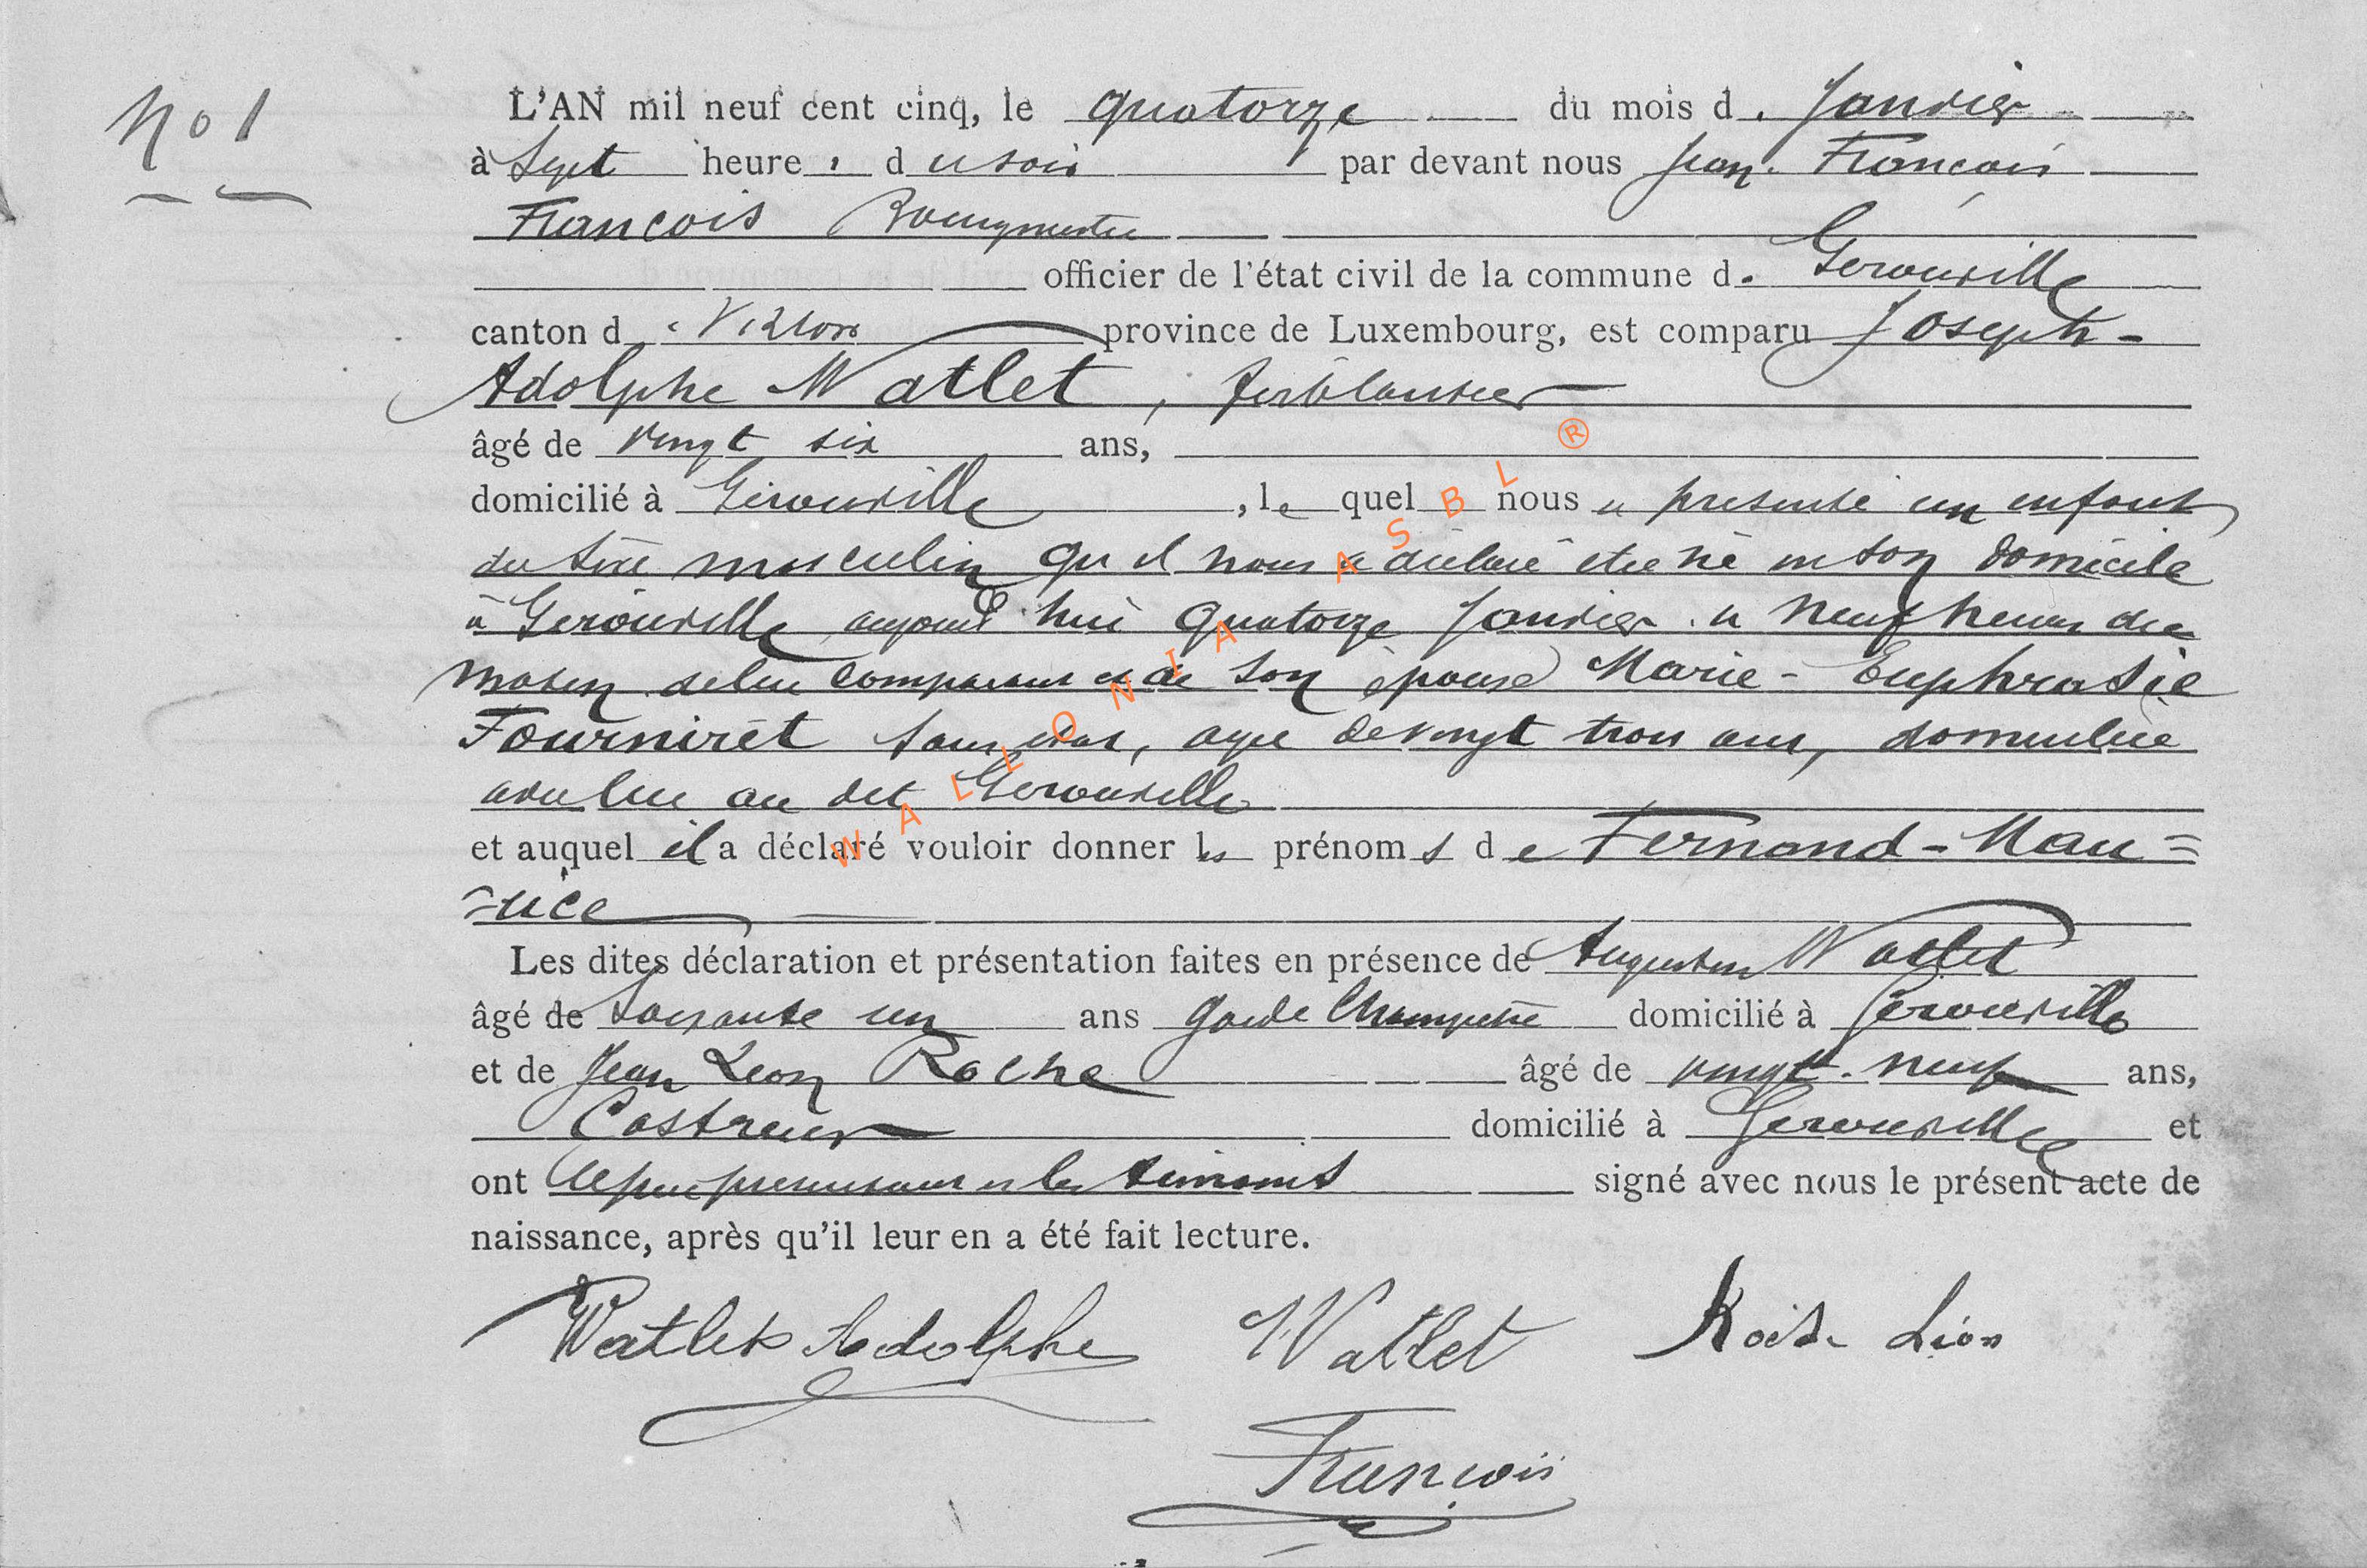 No 1
L'AN mil neuf cent cinq, le quatorze du mois de Janvier
à Sept heures du soir par devant nous Jean François
François Bourgmestre
officier de l'état civil de la commune de Gerouville
canton de Virton province de Luxembourg, est comparu Joseph-
Adolphe Watlet, ferblantier
âgé de vingt six ans,
domicilié à Gérouville, lequel nous a présenté un enfant
du sexe masculin qu'il nous a déclaré être né en son domicile
à Gérouville aujourd'hui quatorze Janvier à neuf heures du
matin de lui comparant et de son épouse Marie-Euphrasie
Fourniret sans état, agée de vingt trois ans, domiciliée
avec lui au dit Gerouville
et auquel il a déclaré vouloir donner les prénoms de Fernand-Mau=
=rice
Les dites déclaration et présentation faites en présence de Augustin Watlet
âgé de Soixante un ans garde Champetre domicilié à Gérouville
et de Jean Leon Roche âgé de vingt-neuf ans,
Castreur domicilié à Gerouville et
ont le père présentant et les témoins signé avec nous le présent acte de
naissance, après qu'il leur en a été fait lecture.
Watlet Adolphe Watlet Léon
François
WALLONIA ASBL ®